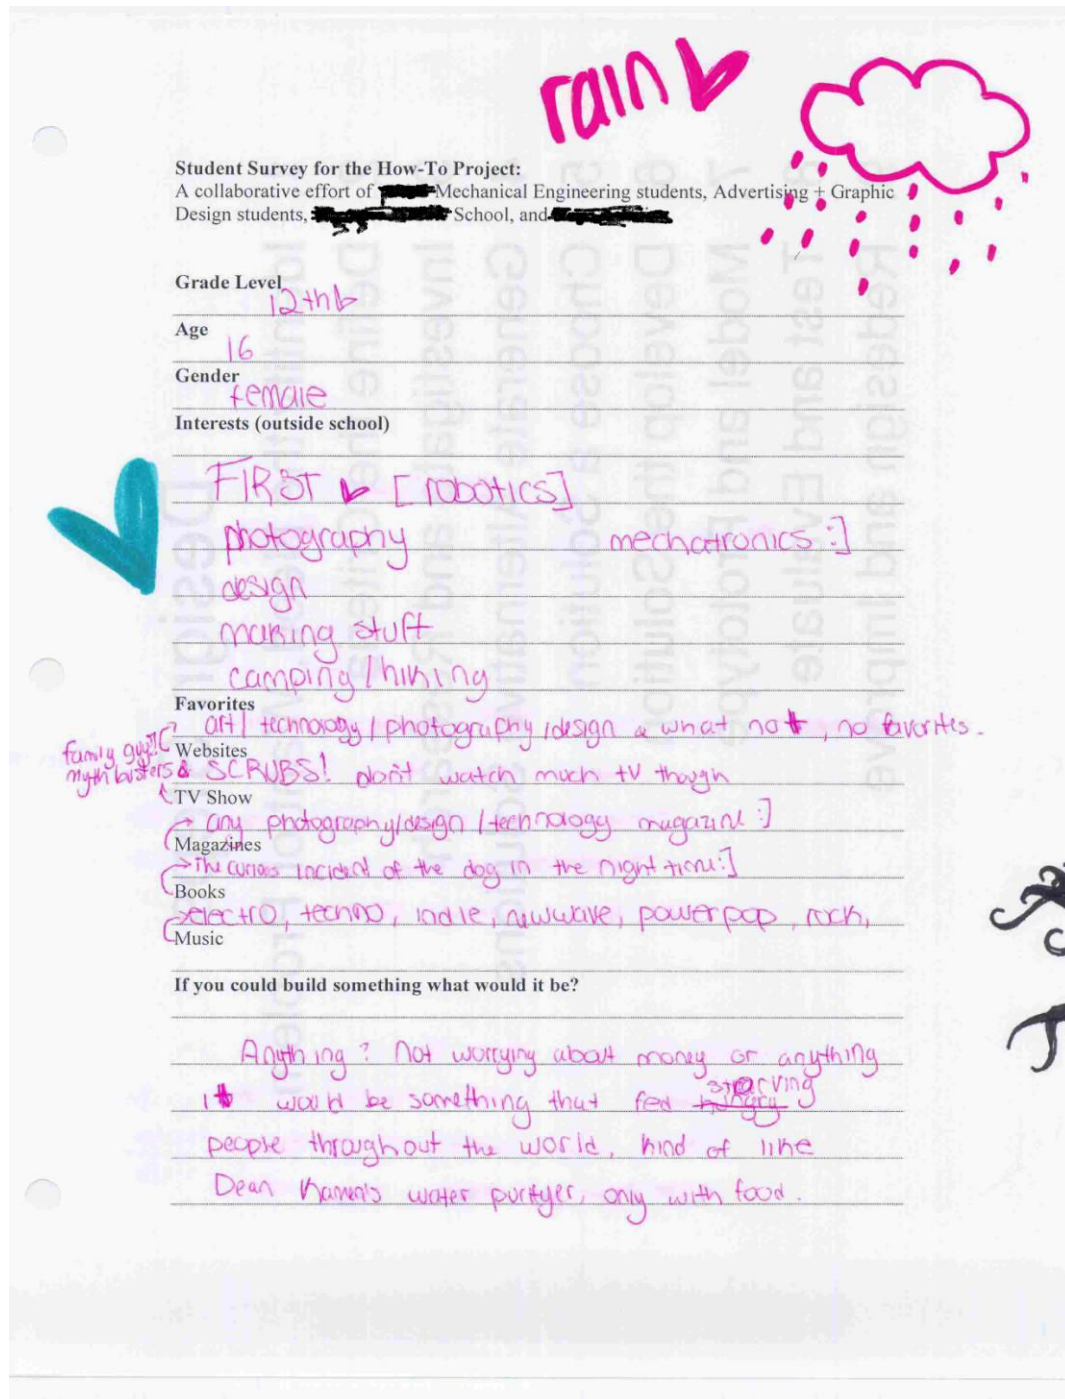 rain
Student Survey for the How-To Project:
A collaborative effort of Mechanical Engineering students, Advertising + Graphic
Design students, School, and
Grade Level
12th
Age
16
Gender
female
Interests (outside school)
FIRST [robotics]
photography mechatronics :]
design
making stuff
camping/hiking
Favorites
art/ technology / photography /design & what not, no favorites.
Websites
family guy!!
mythbusters & SCRUBS! don't watch much tv though
TV Show
any photography/design /technology magazine :]
Magazines
The curious incident of the dog in the night time :]
Books
electro, techno, indie, newwave, powerpop, rock,
Music
If you could build something what would it be?
Anything? Not worrying about money or anything
it would be something that fed hungry starving
people throughout the world, kind of like
Dean Kamen's water purifyer, only with food.